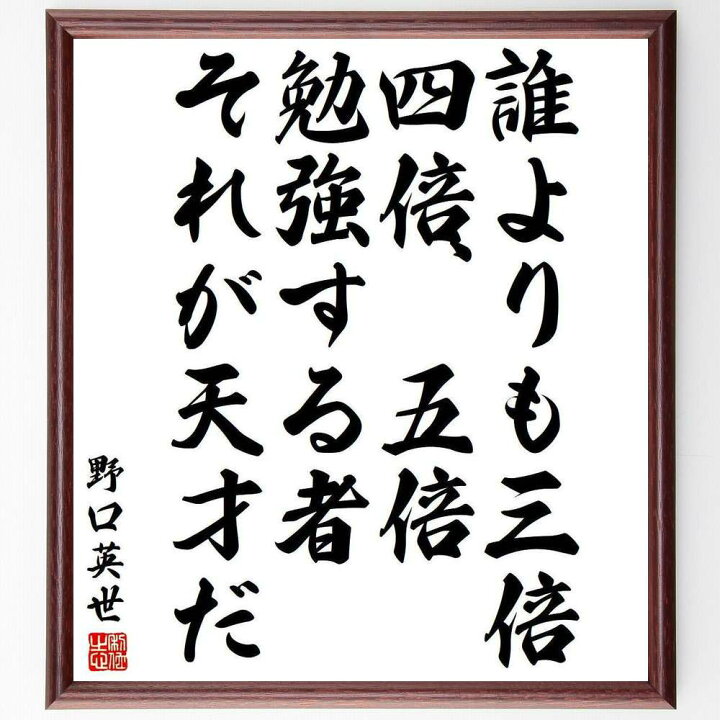 誰よりも三倍
四倍、五倍
勉強する者
それが天才だ
野口英世